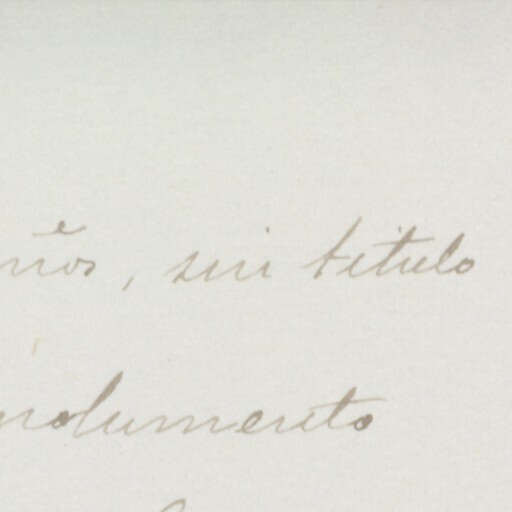 ños, sin titulo
ndumento